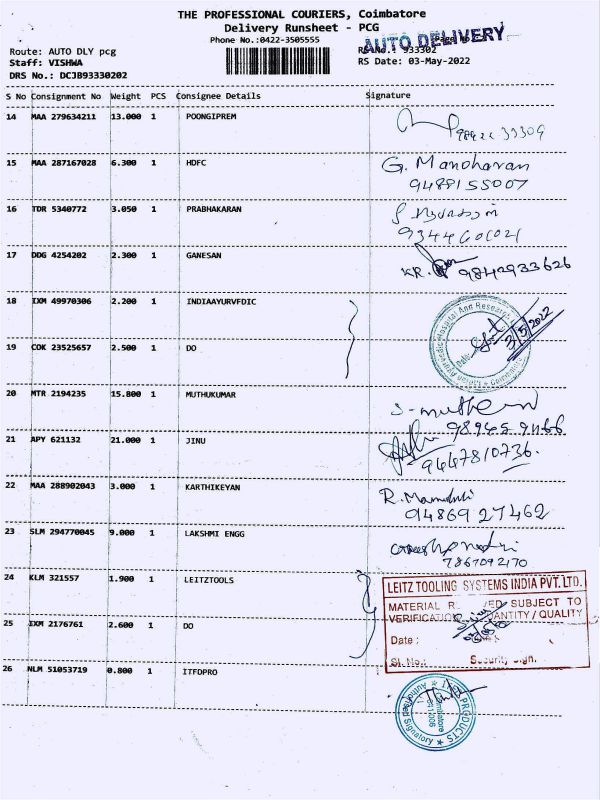 THE PROFESSIONAL COURIERS, Coimbatore
Delivery Runsheet - PCG
Phone No.:0422-3505555
AUTO DELIVERY
Route: AUTO DLY pcg
933302
Staff: VISHWA
RS Date: 03-May-2022
DRS No.: DCJB93330202
S No Consignment No Weight PCS Consignee Details Signature
14 MAA 279634211 13.000 1 POONGIPREM
15 MAA 287167028 6.300 1 HDFC G. Manoharan
9488155007
16 TDR 5340772 3.050 1 PRABHAKARAN
17 DDG 4254202 2.300 1 GANESAN KR. 9842933626
18 IXM 49970306 2.200 1 INDIAAYURVFDIC
3/5/2022
19 COK 23525657 2.500 1 DO
20 MTR 2194235 15.800 1 MUTHUKUMAR
21 APY 621132 21.000 1 JINU
9447810736.
22 MAA 288902043 3.000 1 KARTHIKEYAN R.
9486927462
23 SLM 294770045 9.000 1 LAKSHMI ENGG
7867092170
24 KLM 321557 1.900 1 LEITZTOOLS
LEITZ TOOLING SYSTEMS INDIA PVT. LTD.
MATERIAL SUBJECT TO
VERIFICATION QUANTITY / QUALITY
25 IXM 2176761 2.600 1 DO
Date :
Sl. No.: Security Sign.
26 NLM 51053719 0.800 1 ITFDPRO
PRODUCTS
Authorised Signatory